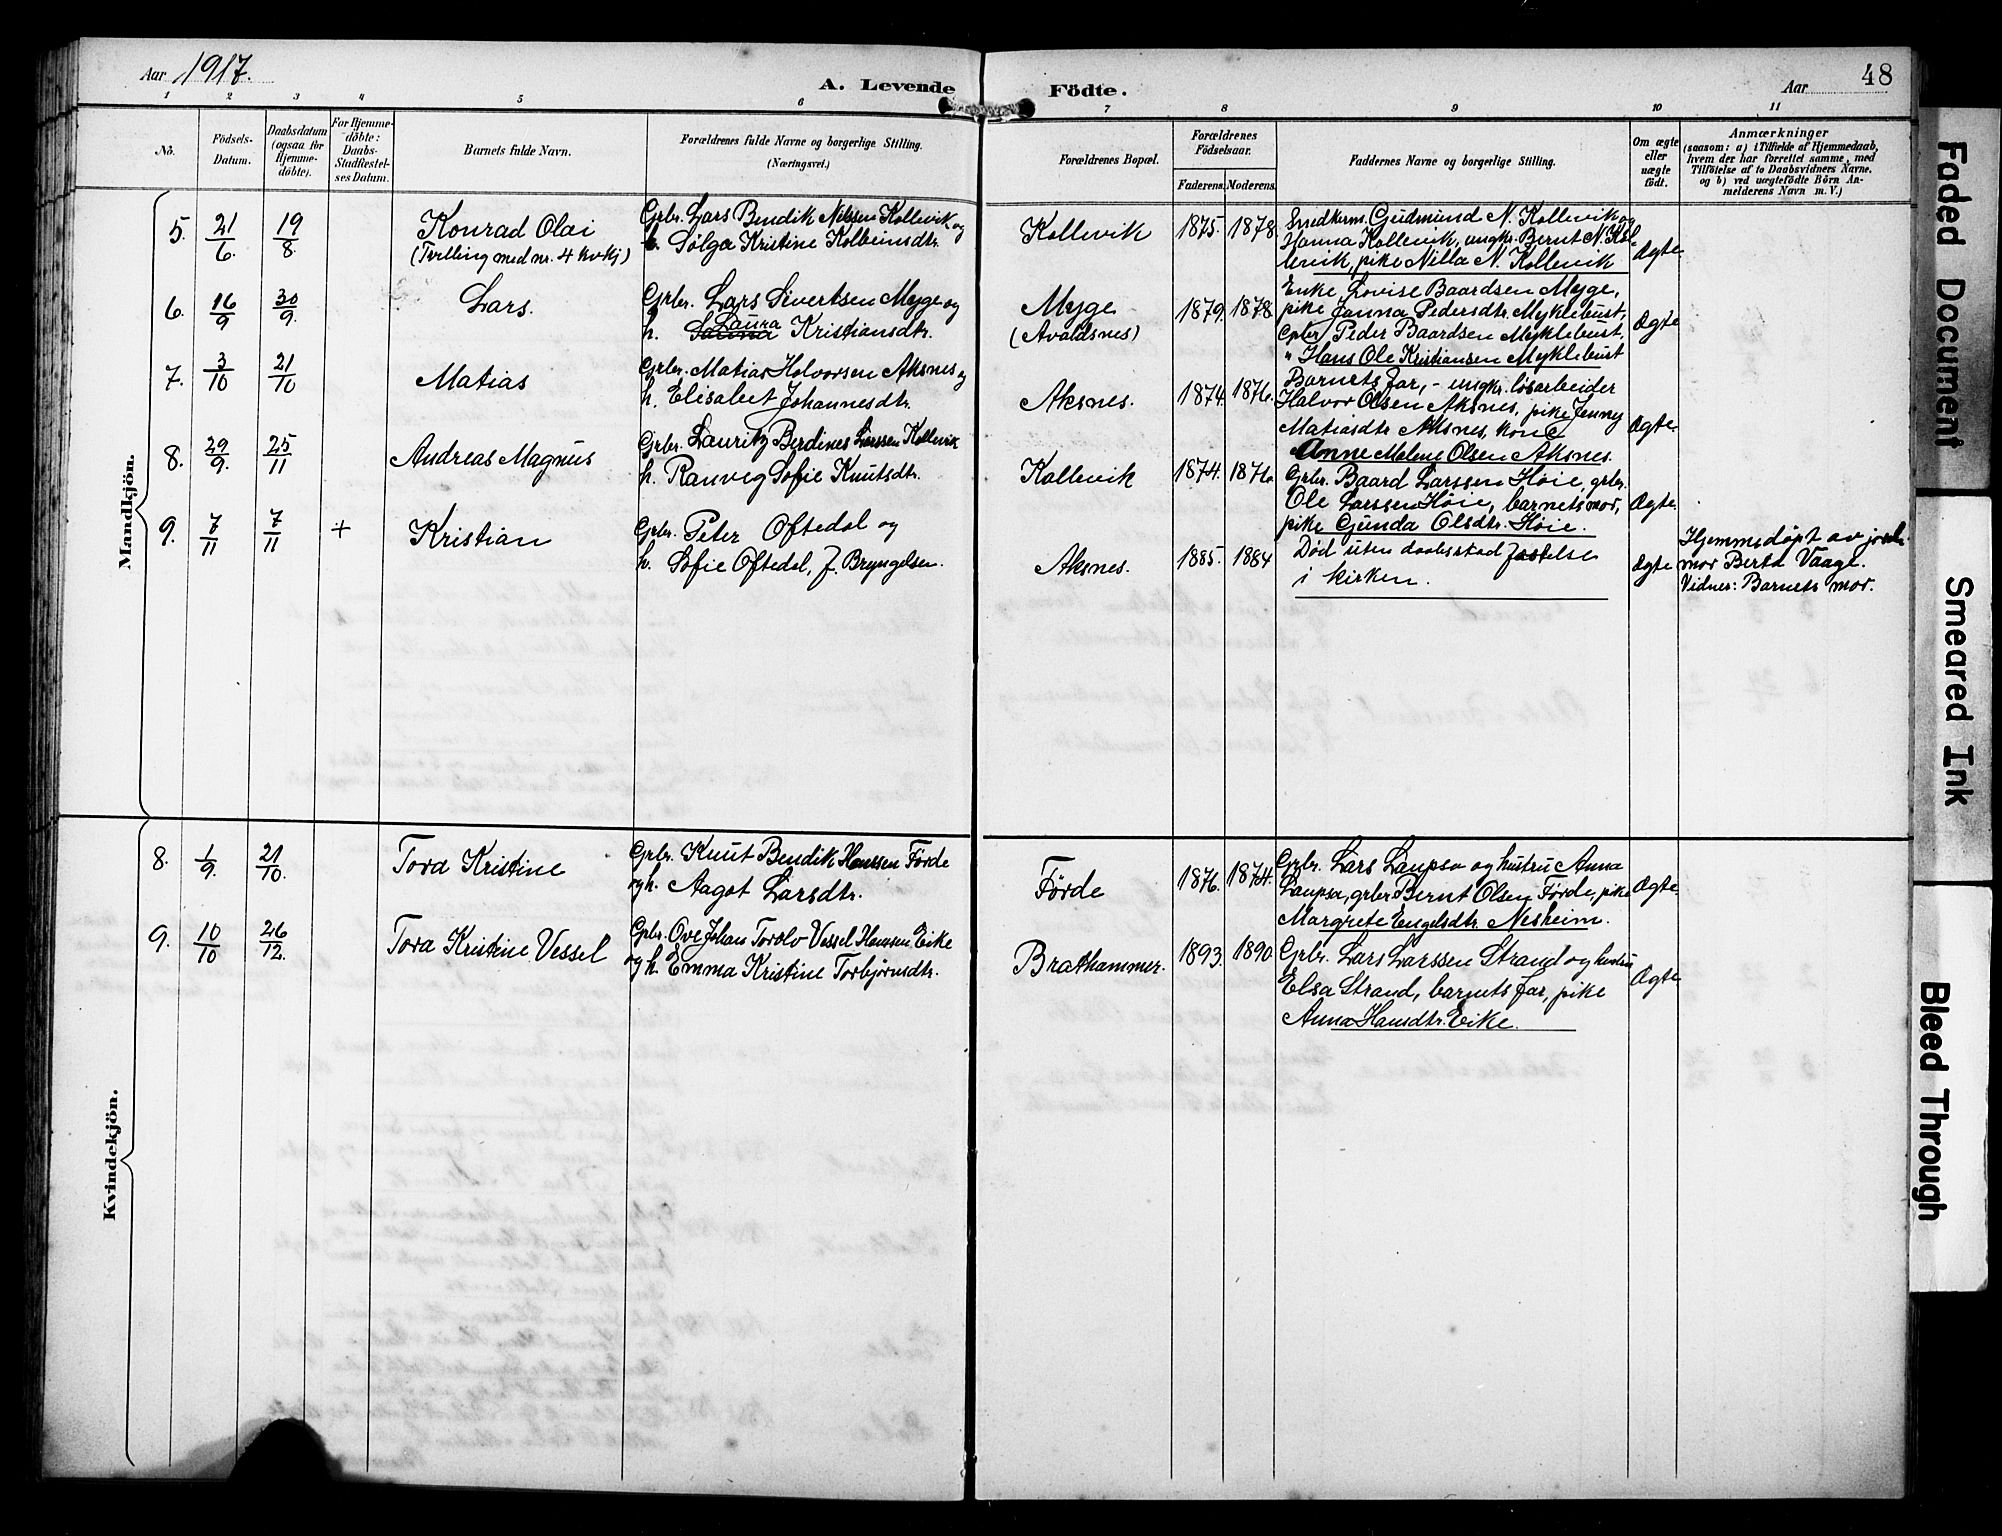 Aar 1917.
A. Levende Födte.
Aar 48
1 2 3 4 5 6 7 8 9 10 11
No.
Födsels-
Datum.
Daabsdatum
(ogsaa for
Hjemme-
döbte).
For Hjemme-
döbte:
Daabs-
Stadfæstel-
ses Datum.
Barnets fulde Navn.
Forældrenes fulde Navne og borgerlige Stilling.
(Næringsvei.)
Forældrenes Bopæl.
Forældrenes
Födselsaar.
Faderens. Moderens.
Faddernes Navne og borgerlige Stilling.
Om ægte
eller
uægte
födt.
Anmærkninger
(saasom: a) i Tilfælde af Hjemmedaab,
hvem der har forrettet samme, med
Tilföielse af to Daabsvidners Navne,
og b) ved uægtefödte Börn An-
melderens Navn m. V.)
Mandkjön.
5. 21/6 19/8
Konrad Olai
(Tvilling med nr. 4 kvkj)
Grbr. Lars Bendik Nilssen Kollevik og
h. Sølga Kristine Kolbeinsdtr.
Kollevik
1875. 1878.
Snedkerm. Gudmund N. Kollevik og
Hanna Kollevik, ungkr. Bernt N. Kol-
levik, pike Nilla N. Kollevik
Ægte
6. 16/9 30/9
Lars.
Grbr. Lars Sivertsen Myge og
h. Laura Kristiansdtr.
Myge
(Avaldsnes)
1879. 1878.
Enke Lovise Baardsen Myge,
pike Janna Pedersdtr. Myklebust,
Grbr. Peder Baardsen Myklebust,
" Hans Ole Kristiansen Myklebust
Ægte
7. 3/10 21/10
Matias
Grbr. Matias Halvorsen Aksnes og
h. Elisabet Johannesdtr.
Aksnes.
1874. 1876.
Barnets far, - ungkr. løsarbeider
Halvor Olsen Aksnes, pike Jenny
Matiasdtr. Aksnes, kone
Anne Malene Olsen Aksnes.
Ægte.
8. 29/9. 25/11
Andreas Magnus
Grbr. Lauritz Berdines Larssen Kollevik
h. Ranveg Sofie Knutsdtr.
Kollevik
1874. 1876.
Grbr. Baard Larssen Høie, grbr.
Ole Larssen Høie, barnets mor,
pike Gunda Olsdtr. Høie.
Ægte.
9. 7/11 7/11 +
Kristian
Grbr. Peter Oftedal og
h. Sofie Oftedal, f. Bryngelsen.
Aksnes.
1885. 1884
Død uten daabsstadfæstelse
i kirken.
Ægte
Hjemmedøpt av jorde-
mor Berta Vaage.
Vidner: Barnets mor.
Kvindekjön.
8. 1/9. 21/10.
Tora Kristine
Grbr. Knut Bendik Hanssen Førde
og h. Aagot Larsdtr.
Førde
1876. 1874.
Grbr. Lars Laupsa og hustru Anna
Laupsa, grbr. Bernt Olsen Førde, pike
Margrete Engelsdtr. Nesheim.
Ægte
9. 10/10 26/12.
Tora Kristine Vessel
Grbr. Ove Johan Torolv Vessel Hanssen Eike
og h. Emma Kristine Torbjørnsdtr.
Brathammer.
1893. 1890.
Grbr. Lars Larssen Strand og hustru
Elsa Strand, barnets far, pike
Anna Hansdtr. Eike.
Ægte
Faded Document
Smeared Ink
Bleed Through